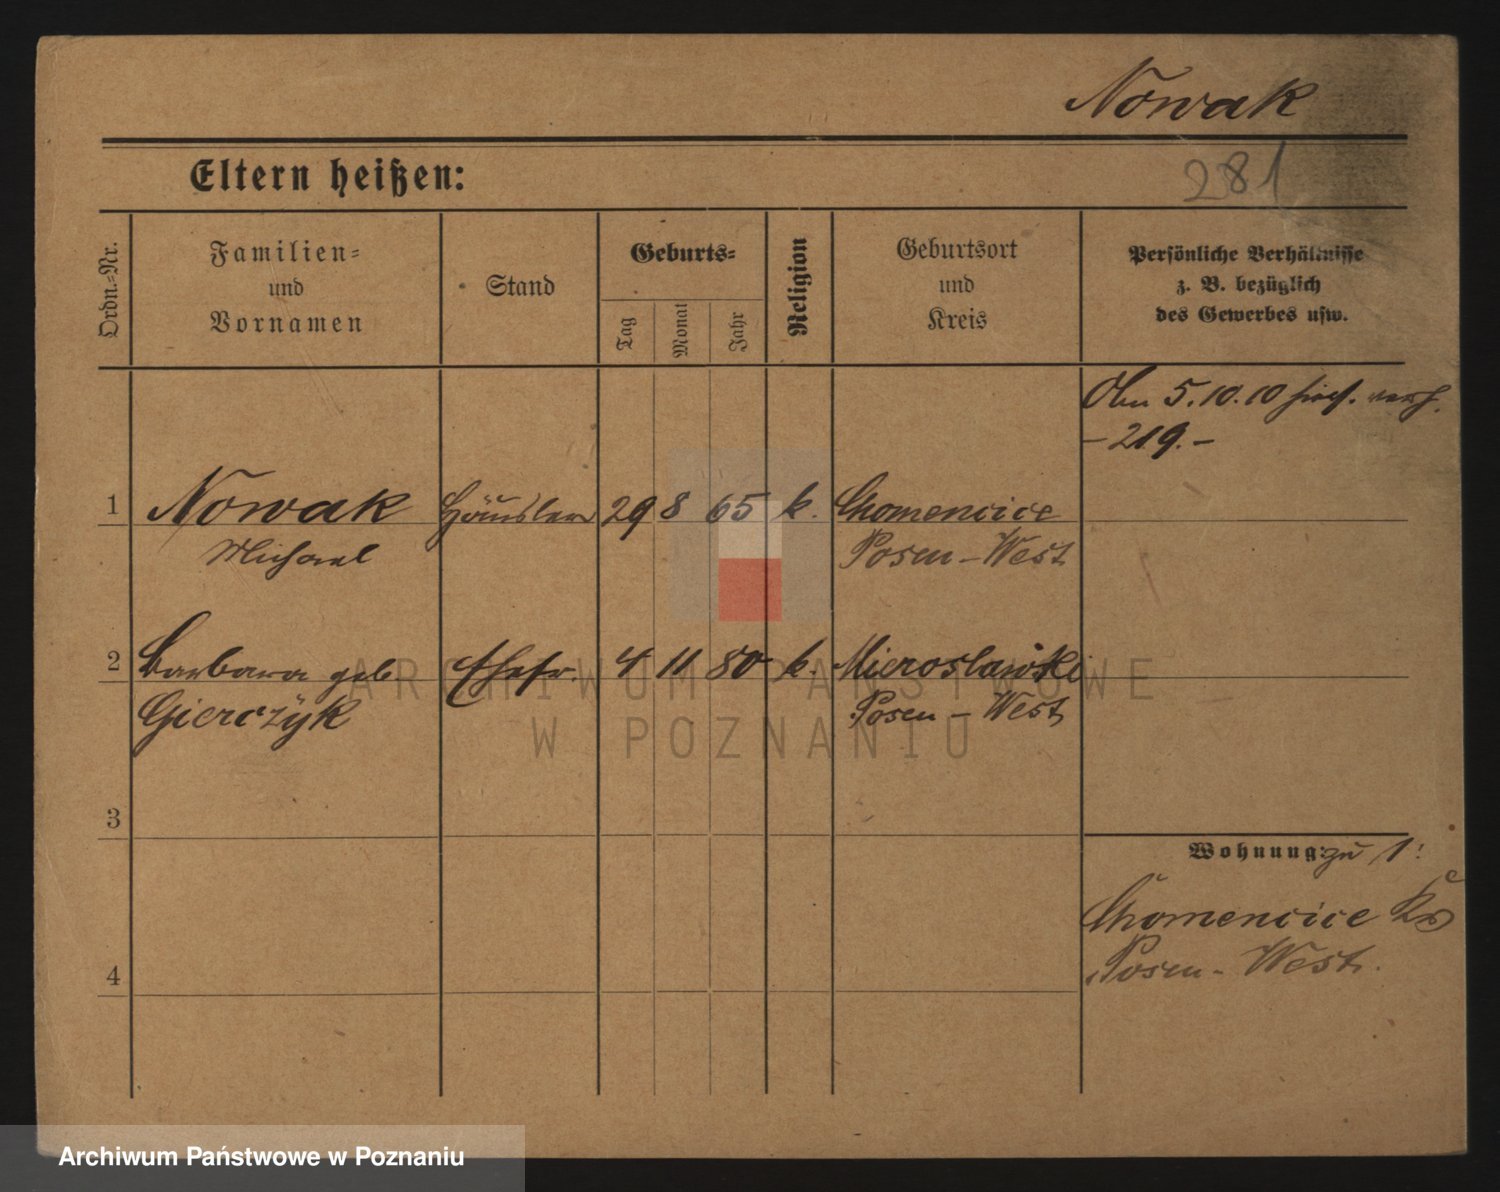 Nowak
Eltern heißen:
281
Ordn.-Nr.
Familien-
und
Vornamen
Stand
Geburts-
Tag
Monat
Jahr
Religion
Geburtsort
und
Kreis
Persönliche Verhältnisse
z. B. bezüglich
des Gewerbes usw.
5.10.10
– 219. –
1 Nowak Häusler 29 8 65 k. Chomencice
Michael Posen - West
2 Barbara geb Ehefr. 4 11 80 k. Mieroslawski
Gierczyk Posen - West
3
Wohnung: zu 1:
Chomencice Kr
4 Posen - West.
ARCHIWUM PAŃSTWOWE
W POZNANIU
Archiwum Państwowe w Poznaniu